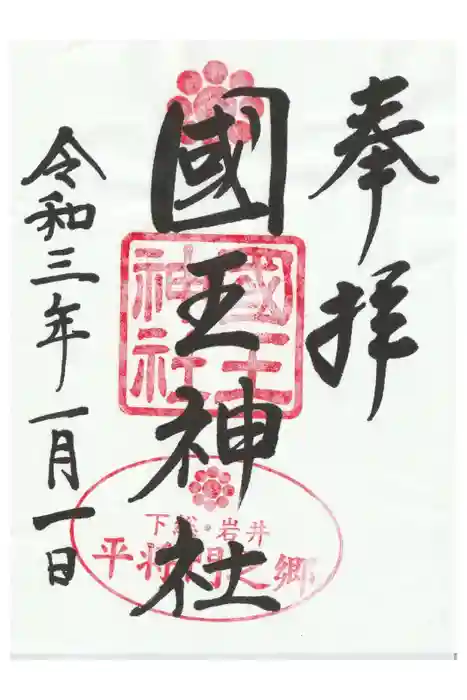 奉拝
國王神社
令和三年一月一日
國王
神社
下総・岩井
平将門之郷